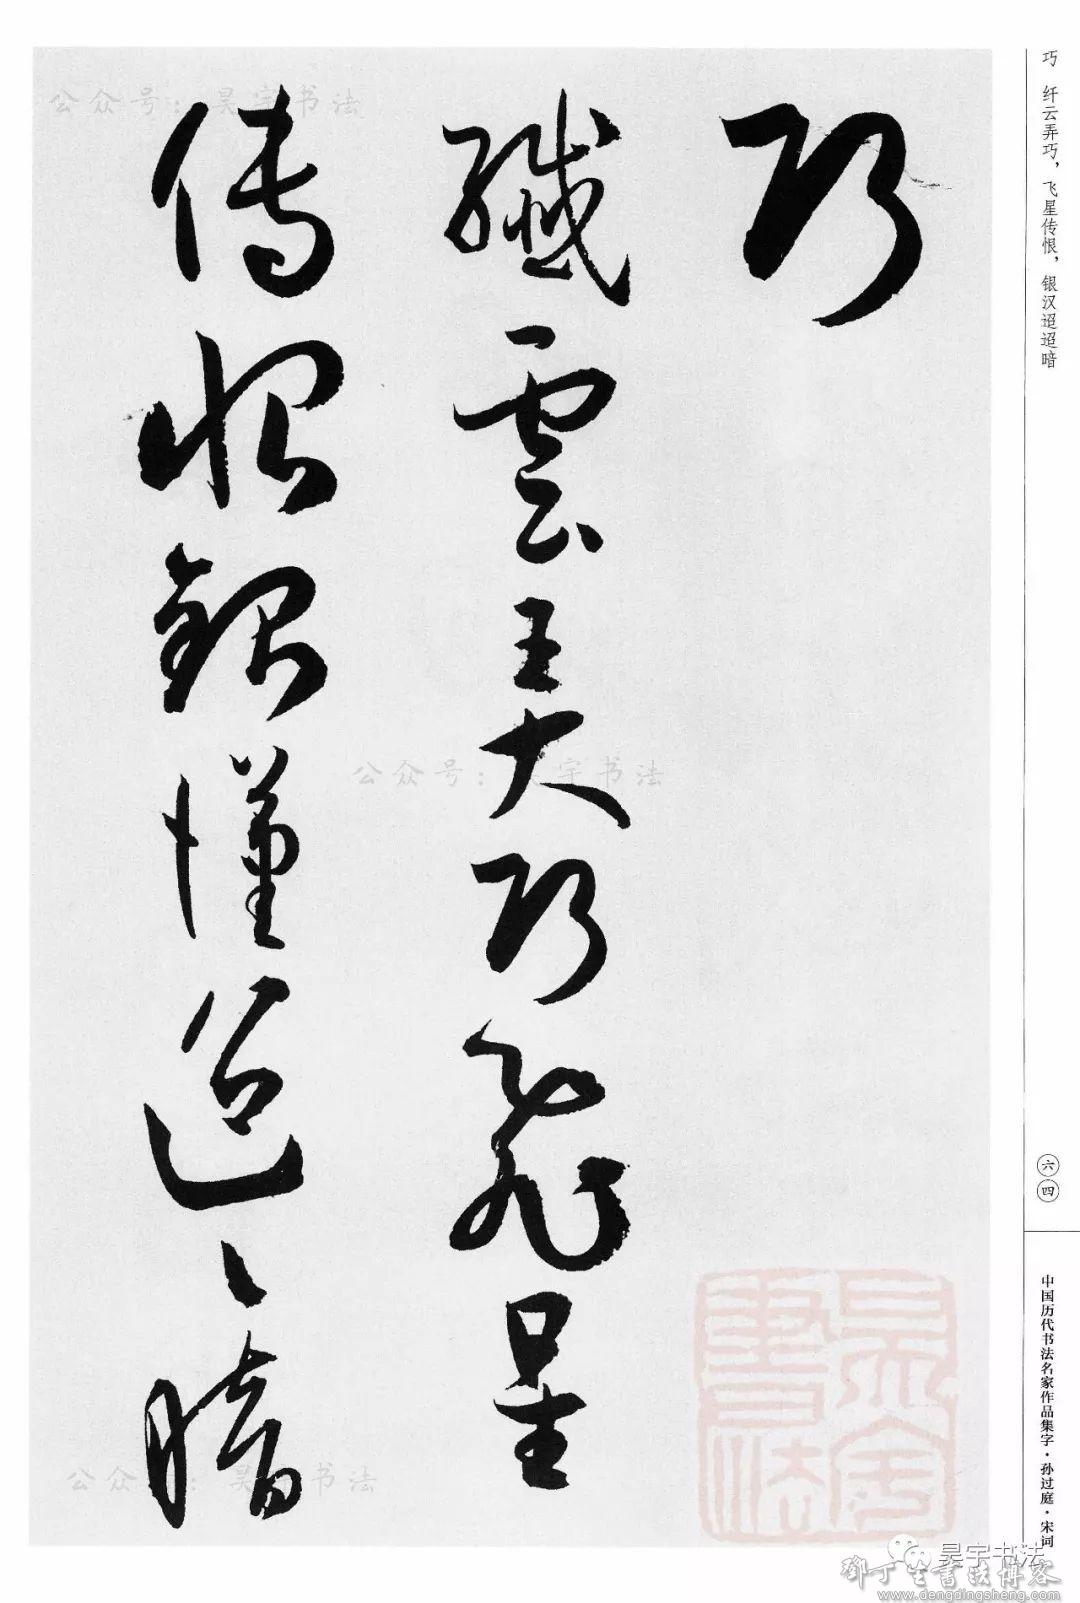 巧 纤云弄巧，飞星传恨，银汉迢迢暗
六四
中国历代书法名家作品集字·孙过庭·宋词
巧
纖雲弄巧飛星
傳恨銀漢迢〻暗
公众号：昊宇书法
公众号：昊宇书法
公众号：昊宇书法
昊宇書法
昊宇书法
鄧丁生書法博客
www.dengdingsheng.com